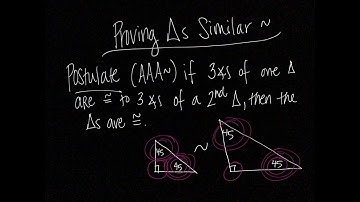 Proving Δs Similar ~
Postulate (AAA~) if 3 ∡s of one Δ
are ≅ to 3 ∡s of a 2nd Δ, then the
Δs are ≅.
45 45 ~ 45 45